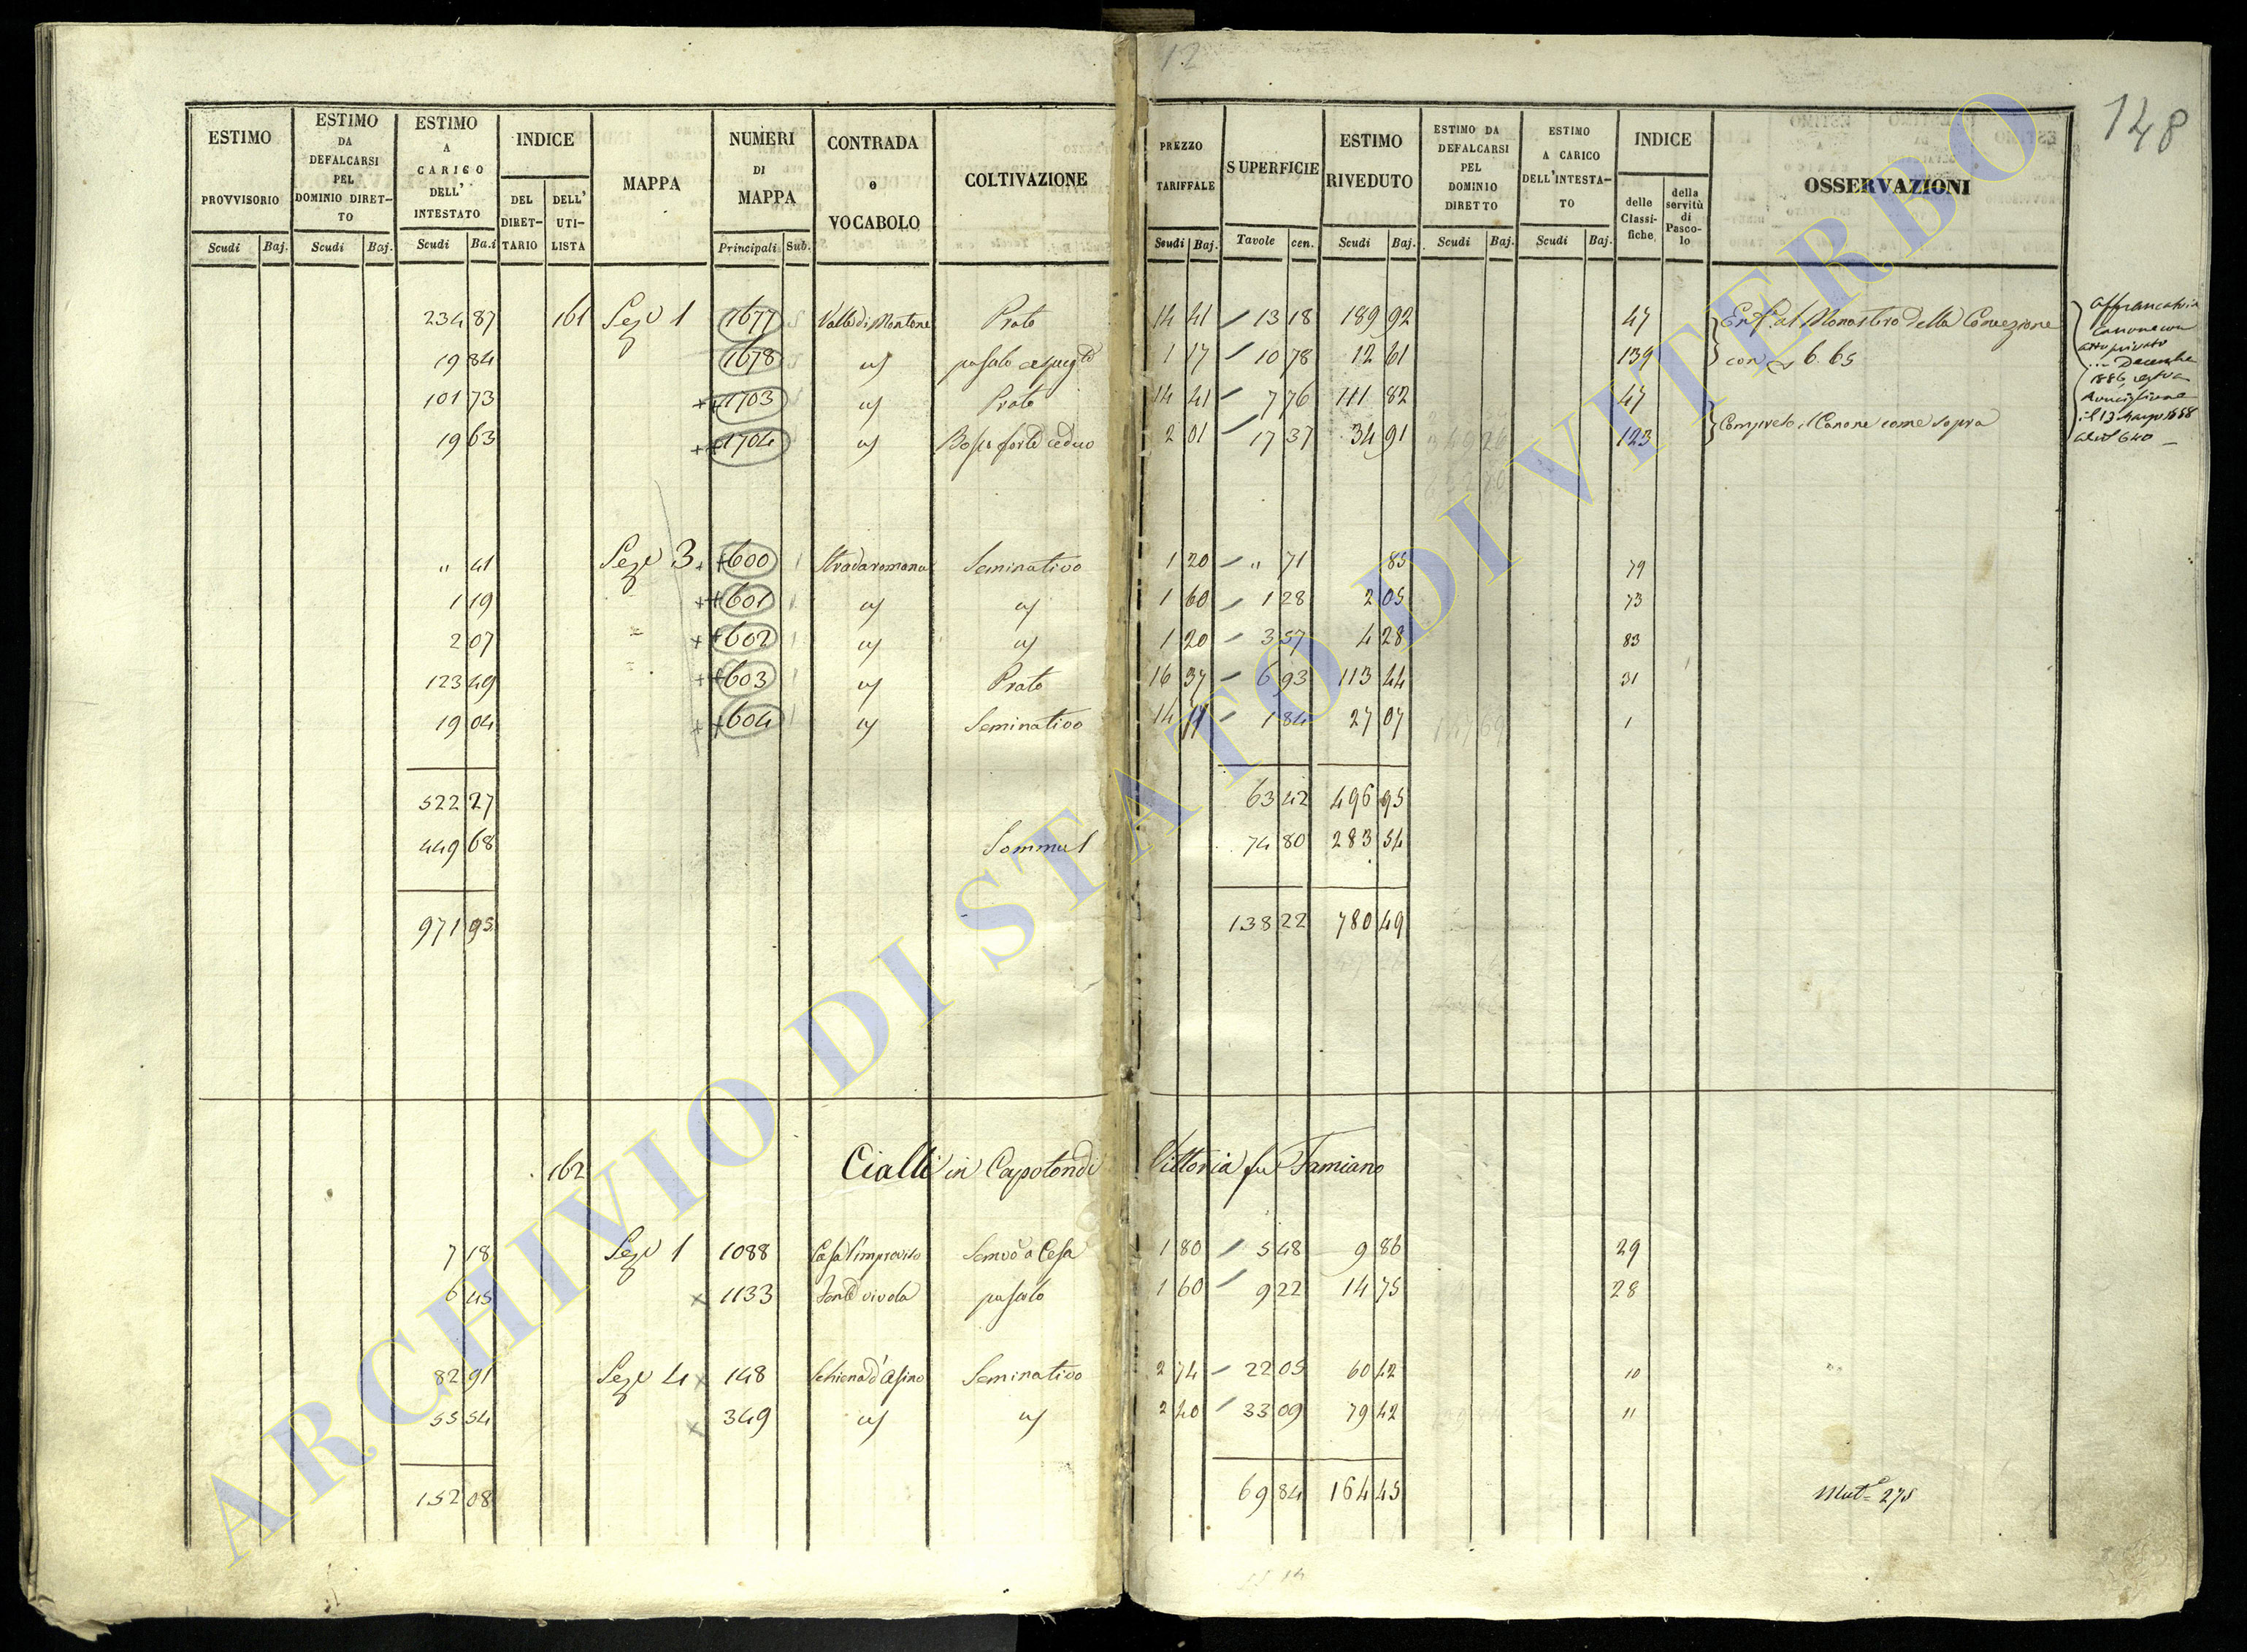 12
148
ESTIMO PROVVISORIO Scudi Baj.
ESTIMO DA DEFALCARSI PEL DOMINIO DIRETTO Scudi Baj.
ESTIMO A CARICO DELL' INTESTATO Scudi Ba.i
INDICE DEL DIRETTARIO DELL' UTILISTA
MAPPA
NUMERI DI MAPPA Principali Sub.
CONTRADA e VOCABOLO
COLTIVAZIONE
PREZZO TARIFFALE Scudi Baj.
SUPERFICIE Tavole cen.
ESTIMO RIVEDUTO Scudi Baj.
ESTIMO DA DEFALCARSI PEL DOMINIO DIRETTO Scudi Baj.
ESTIMO A CARICO DELL'INTESTATO Scudi Baj.
INDICE delle Classifiche della servitù di Pascolo
OSSERVAZIONI
234 87 161 Seze 1 1677 Valle di Montone Prato 14 41 13 18 189 92 47 Enf. al Monastero della Concezione
19 84 1678 id 1 17 10 78 12 61 139 con 6. 65
101 73 1703 id Prato 14 41 7 76 111 82 47
19 63 1704 id Bosco forte ceduo 2 01 17 37 34 91 123 Compreso il Canone come sopra
" 41 Seze 3 600 Strada romana Seminativo 1 20 " 71 85 79
1 19 601 id id 1 60 1 28 2 05 73
2 07 602 id id 1 20 3 57 4 28 83
123 49 603 id Prato 16 37 6 93 113 44 31
19 04 604 id Seminativo 14 71 1 84 27 07 1
522 27 63 42 496 95
449 68 Somma 74 80 283 54
971 95 138 22 780 49
162 Cialli in Capotondi Vittoria fu Famiano
7 18 Seze 1 1088 Semvo a Cesa 1 80 5 48 9 86 29
6 45 1133 pascolo 1 60 9 22 14 75 28
82 91 Seze 4 148 Schiena d'Asino Seminativo 2 74 22 05 60 42 10
55 54 349 id id 2 40 33 09 79 42 11
152 08 69 84 164 45 Mut. 275
ARCHIVIO DI STATO DI VITERBO